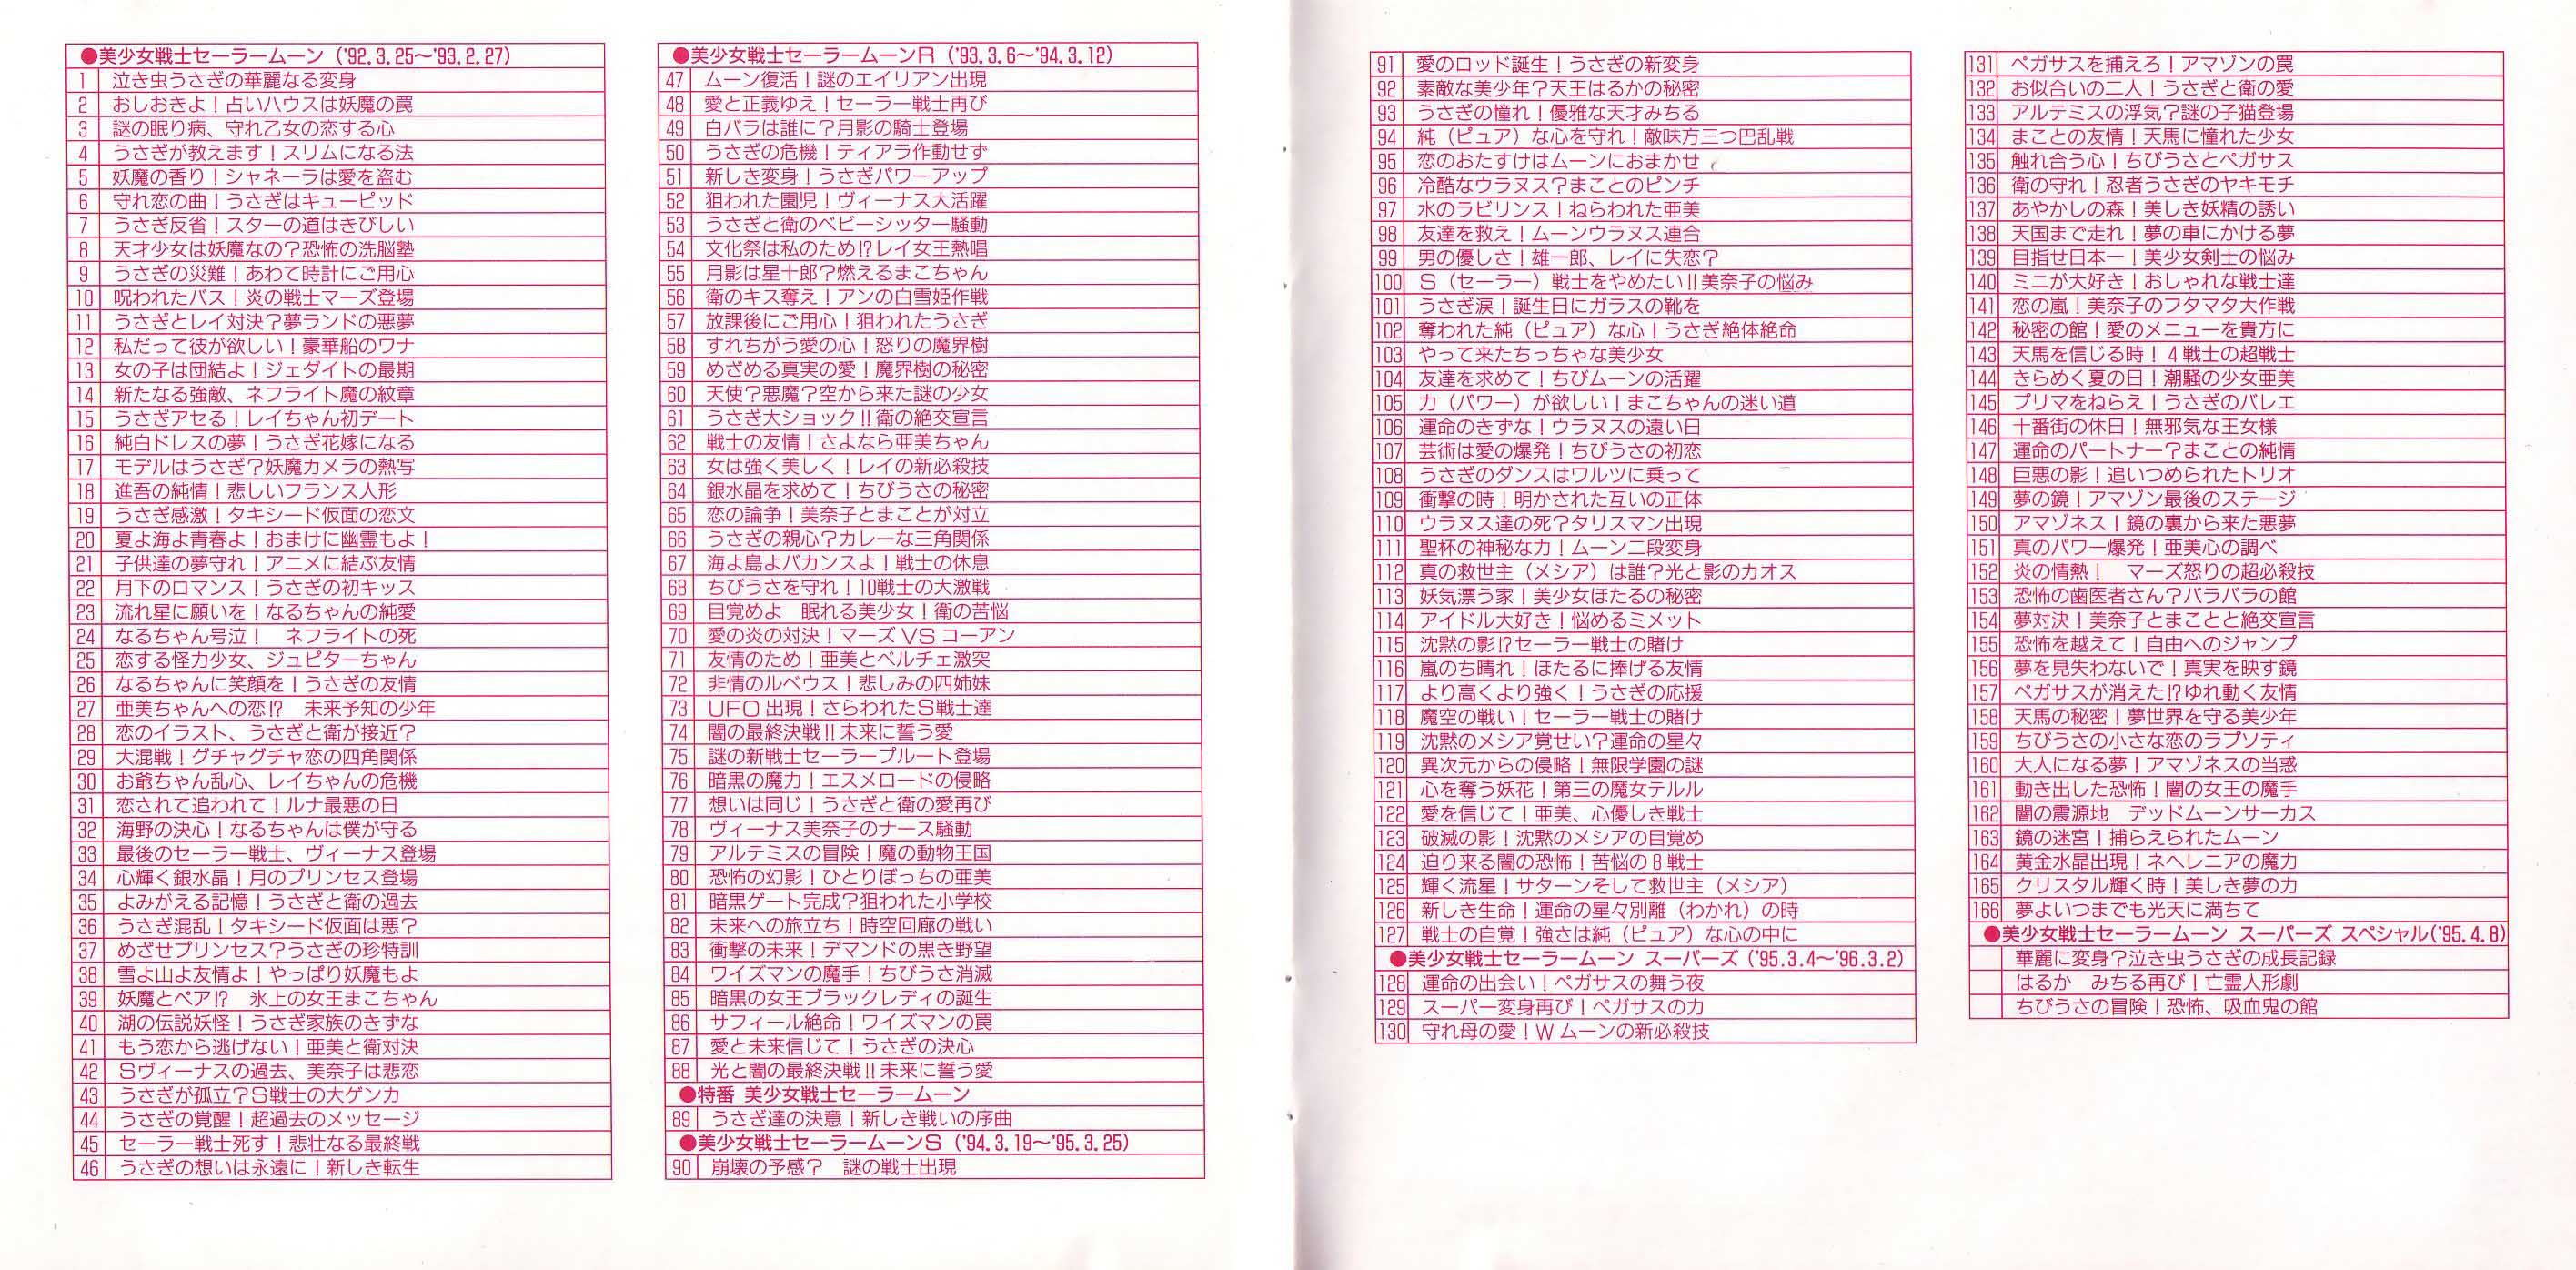 ●美少女戦士セーラームーン ('92.3.25〜'93.2.27)
1 泣き虫うさぎの華麗なる変身
2 おしおきよ！占いハウスは妖魔の罠
3 謎の眠り病、守れ乙女の恋する心
4 うさぎが教えます！スリムになる法
5 妖魔の香り！シャネーラは愛を盗む
6 守れ恋の曲！うさぎはキューピッド
7 うさぎ反省！スターの道はきびしい
8 天才少女は妖魔なの？恐怖の洗脳塾
9 うさぎの災難！あわて時計にご用心
10 呪われたバス！炎の戦士マーズ登場
11 うさぎとレイ対決？夢ランドの悪夢
12 私だって彼が欲しい！豪華船のワナ
13 女の子は団結よ！ジェダイトの最期
14 新たなる強敵、ネフライト魔の紋章
15 うさぎアセる！レイちゃん初デート
16 純白ドレスの夢！うさぎ花嫁になる
17 モデルはうさぎ？妖魔カメラの熱写
18 進吾の純情！悲しいフランス人形
19 うさぎ感激！タキシード仮面の恋文
20 夏よ海よ青春よ！おまけに幽霊もよ！
21 子供達の夢守れ！アニメに結ぶ友情
22 月下のロマンス！うさぎの初キッス
23 流れ星に願いを！なるちゃんの純愛
24 なるちゃん号泣！　ネフライトの死
25 恋する怪力少女、ジュピターちゃん
26 なるちゃんに笑顔を！うさぎの友情
27 亜美ちゃんへの恋!?　未来予知の少年
28 恋のイラスト、うさぎと衛が接近？
29 大混戦！グチャグチャ恋の四角関係
30 お爺ちゃん乱心、レイちゃんの危機
31 恋されて追われて！ルナ最悪の日
32 海野の決心！なるちゃんは僕が守る
33 最後のセーラー戦士、ヴィーナス登場
34 心輝く銀水晶！月のプリンセス登場
35 よみがえる記憶！うさぎと衛の過去
36 うさぎ混乱！タキシード仮面は悪？
37 めざせプリンセス？うさぎの珍特訓
38 雪よ山よ友情よ！やっぱり妖魔もよ
39 妖魔とペア!?　氷上の女王まこちゃん
40 湖の伝説妖怪！うさぎ家族のきずな
41 もう恋から逃げない！亜美と衛対決
42 Sヴィーナスの過去、美奈子は悲恋
43 うさぎが孤立？S戦士の大ゲンカ
44 うさぎの覚醒！超過去のメッセージ
45 セーラー戦士死す！悲壮なる最終戦
46 うさぎの想いは永遠に！新しき転生
●美少女戦士セーラームーンR ('93.3.6〜'94.3.12)
47 ムーン復活！謎のエイリアン出現
48 愛と正義ゆえ！セーラー戦士再び
49 白バラは誰に？月影の騎士登場
50 うさぎの危機！ティアラ作動せず
51 新しき変身！うさぎパワーアップ
52 狙われた園児！ヴィーナス大活躍
53 うさぎと衛のベビーシッター騒動
54 文化祭は私のため!?レイ女王熱唱
55 月影は星十郎？燃えるまこちゃん
56 衛のキス奪え！アンの白雪姫作戦
57 放課後にご用心！狙われたうさぎ
58 すれちがう愛の心！怒りの魔界樹
59 めざめる真実の愛！魔界樹の秘密
60 天使？悪魔？空から来た謎の少女
61 うさぎ大ショック!!衛の絶交宣言
62 戦士の友情！さよなら亜美ちゃん
63 女は強く美しく！レイの新必殺技
64 銀水晶を求めて！ちびうさの秘密
65 恋の論争！美奈子とまことが対立
66 うさぎの親心？カレーな三角関係
67 海よ島よバカンスよ！戦士の休息
68 ちびうさを守れ！10戦士の大激戦
69 目覚めよ　眠れる美少女！衛の苦悩
70 愛の炎の対決！マーズ VS コーアン
71 友情のため！亜美とベルチェ激突
72 非情のルベウス！悲しみの四姉妹
73 UFO 出現！さらわれたS戦士達
74 闇の最終決戦!!未来に誓う愛
75 謎の新戦士セーラープルート登場
76 暗黒の魔力！エスメロードの侵略
77 想いは同じ！うさぎと衛の愛再び
78 ヴィーナス美奈子のナース騒動
79 アルテミスの冒険！魔の動物王国
80 恐怖の幻影！ひとりぼっちの亜美
81 暗黒ゲート完成？狙われた小学校
82 未来への旅立ち！時空回廊の戦い
83 衝撃の未来！デマンドの黒き野望
84 ワイズマンの魔手！ちびうさ消滅
85 暗黒の女王ブラックレディの誕生
86 サフィール絶命！ワイズマンの罠
87 愛と未来信じて！うさぎの決心
88 光と闇の最終決戦!!未来に誓う愛
●特番 美少女戦士セーラームーン
89 うさぎ達の決意！新しき戦いの序曲
●美少女戦士セーラームーンS ('94.3.19〜'95.3.25)
90 崩壊の予感？　謎の戦士出現
91 愛のロッド誕生！うさぎの新変身
92 素敵な美少年？天王はるかの秘密
93 うさぎの憧れ！優雅な天才みちる
94 純（ピュア）な心を守れ！敵味方三つ巴乱戦
95 恋のおたすけはムーンにおまかせ
96 冷酷なウラヌス？まことのピンチ
97 水のラビリンス！ねらわれた亜美
98 友達を救え！ムーンウラヌス連合
99 男の優しさ！雄一郎、レイに失恋？
100 S（セーラー）戦士をやめたい!!美奈子の悩み
101 うさぎ涙！誕生日にガラスの靴を
102 奪われた純（ピュア）な心！うさぎ絶体絶命
103 やって来たちっちゃな美少女
104 友達を求めて！ちびムーンの活躍
105 力（パワー）が欲しい！まこちゃんの迷い道
106 運命のきずな！ウラヌスの遠い日
107 芸術は愛の爆発！ちびうさの初恋
108 うさぎのダンスはワルツに乗って
109 衝撃の時！明かされた互いの正体
110 ウラヌス達の死？タリスマン出現
111 聖杯の神秘な力！ムーン二段変身
112 真の救世主（メシア）は誰？光と影のカオス
113 妖気漂う家！美少女ほたるの秘密
114 アイドル大好き！悩めるミメット
115 沈黙の影!?セーラー戦士の賭け
116 嵐のち晴れ！ほたるに捧げる友情
117 より高くより強く！うさぎの応援
118 魔空の戦い！セーラー戦士の賭け
119 沈黙のメシア覚せい？運命の星々
120 異次元からの侵略！無限学園の謎
121 心を奪う妖花！第三の魔女テルル
122 愛を信じて！亜美、心優しき戦士
123 破滅の影！沈黙のメシアの目覚め
124 迫り来る闇の恐怖！苦悩の8戦士
125 輝く流星！サターンそして救世主（メシア）
126 新しき生命！運命の星々別離（わかれ）の時
127 戦士の自覚！強さは純（ピュア）な心の中に
●美少女戦士セーラームーン スーパーズ ('95.3.4〜'96.3.2)
128 運命の出会い！ペガサスの舞う夜
129 スーパー変身再び！ペガサスの力
130 守れ母の愛！W ムーンの新必殺技
131 ペガサスを捕えろ！アマゾンの罠
132 お似合いの二人！うさぎと衛の愛
133 アルテミスの浮気？謎の子猫登場
134 まことの友情！天馬に憧れた少女
135 触れ合う心！ちびうさとペガサス
136 衛の守れ！忍者うさぎのヤキモチ
137 あやかしの森！美しき妖精の誘い
138 天国まで走れ！夢の車にかける夢
139 目指せ日本一！美少女剣士の悩み
140 ミニが大好き！おしゃれな戦士達
141 恋の嵐！美奈子のフタマタ大作戦
142 秘密の館！愛のメニューを貴方に
143 天馬を信じる時！4戦士の超戦士
144 きらめく夏の日！潮騒の少女亜美
145 プリマをねらえ！うさぎのバレエ
146 十番街の休日！無邪気な王女様
147 運命のパートナー？まことの純情
148 巨悪の影！追いつめられたトリオ
149 夢の鏡！アマゾン最後のステージ
150 アマゾネス！鏡の裏から来た悪夢
151 真のパワー爆発！亜美心の調べ
152 炎の情熱！　マーズ怒りの超必殺技
153 恐怖の歯医者さん？パラパラの館
154 夢対決！美奈子とまことと絶交宣言
155 恐怖を越えて！自由へのジャンプ
156 夢を見失わないで！真実を映す鏡
157 ペガサスが消えた!?ゆれ動く友情
158 天馬の秘密！夢世界を守る美少年
159 ちびうさの小さな恋のラプソティ
160 大人になる夢！アマゾネスの当惑
161 動き出した恐怖！闇の女王の魔手
162 闇の震源地　デッドムーンサーカス
163 鏡の迷宮！捕らえられたムーン
164 黄金水晶出現！ネヘレニアの魔力
165 クリスタル輝く時！美しき夢の力
166 夢よいつまでも光天に満ちて
●美少女戦士セーラームーン スーパーズ スペシャル('95.4.8)
華麗に変身？泣き虫うさぎの成長記録
はるか　みちる再び！亡霊人形劇
ちびうさの冒険！恐怖、吸血鬼の館